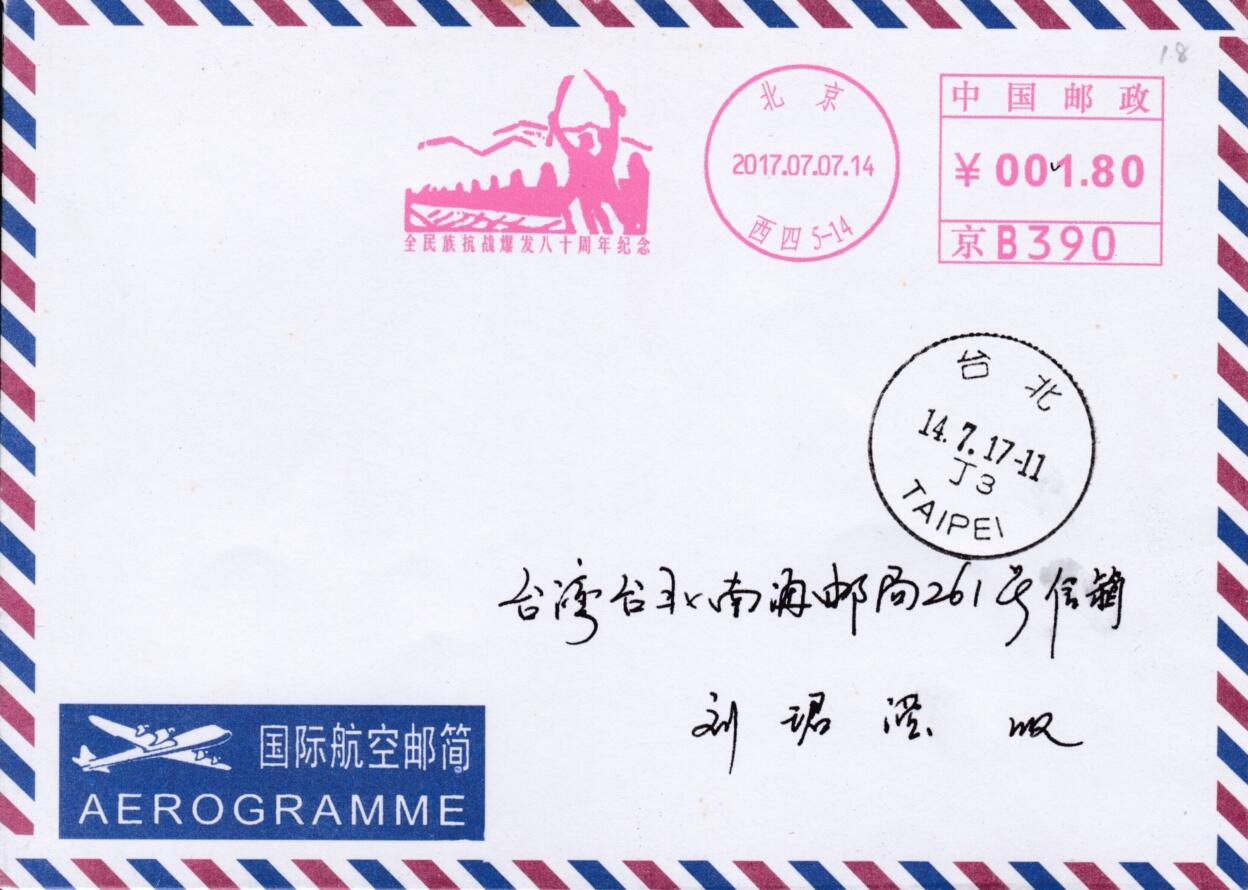 1.8
北京
2017.07.07.14
西四 5-14
中国邮政
¥ 001.80
京B390
全民族抗战爆发八十周年纪念
台北
14.7.17-11
J3
TAIPEI
台湾台北南海邮局261号信箱
刘珺 收
国际航空邮简
AEROGRAMME